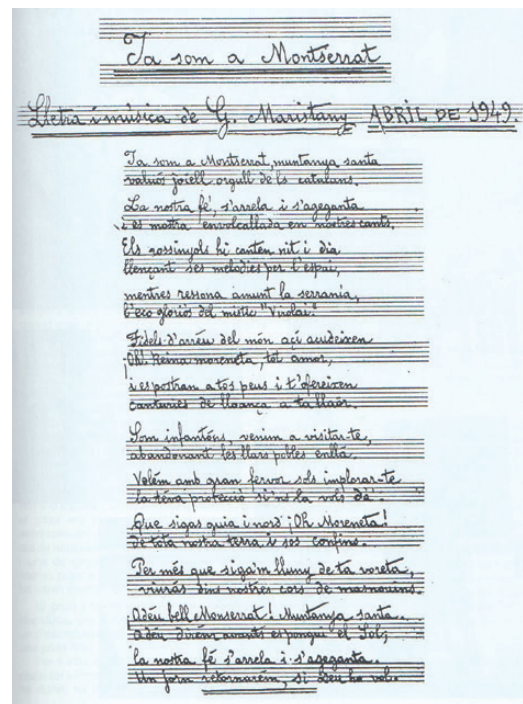 Ja som a Montserrat
Lletra i música de G. Maristany ABRIL DE 1949.
Ja som a Montserrat, muntanya santa
valuós joiell orgull de ls catalans.
La nostra fé, s'arrela i s'ageganta
i es mostra envolcallada en nostres cants.
Els rossinyols hi canten nit i dia
llençant ses melodies per l'espai,
mentres ressona amunt la serranía,
l'eco gloriós del mistic "Virolai."
Fidels d'arréu del món açí acudeixen
¡Oh! Reina moreneta, tot amor,
i es postran a tos peus i t'ofereixen
canturies de lloança a ta llaór.
Som infantóns, venim a visitar-te,
abandonant les llars pobles enllà.
Volém amb gran fervor sols implorar-te
la téva protecció si'ns la vols dà.
Que sigas guia i nord ¡Oh Moreneta!
de tota nostra terra i sos confins.
Per més que siga'm lluny de ta voreta,
viuràs dins nostres cors de masnouins.
¡Adéu bell Monserrat! Muntanya santa..
adéu dirém avants es pongui el Sol;
la nostra fé s'arrela i s'ageganta.
Un jorn retornarém, si Deu ho vol.